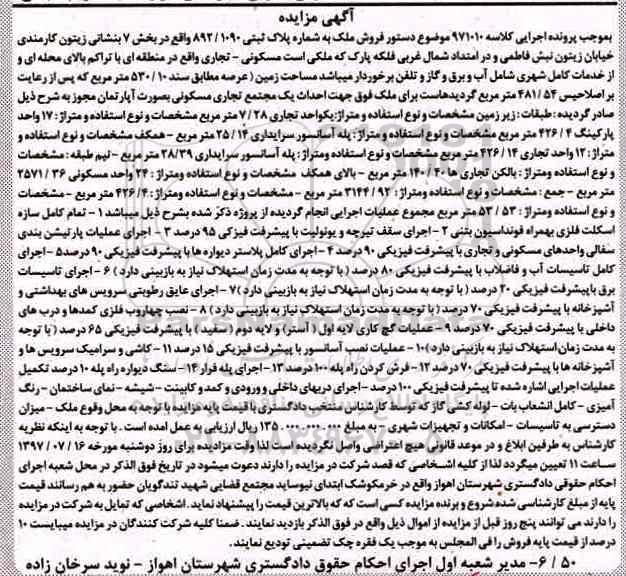 آگهی مزایده
بموجب پرونده اجرایی کلاسه 971010 موضوع دستور فروش ملک به شماره پلاک ثبتی 1090 / 892 واقع در بخش 7 بنشانی زیتون کارمندی
خیابان زیتون نبش فاطمی و در امتداد شمال غربی فلکه پارک که ملکی است مسکونی - تجاری واقع در منطقه ای با تراکم بالای محله ای و
از خدمات کامل شهری شامل آب و برق و گاز و تلفن برخوردار میباشد مساحت زمین (عرصه مطابق سند 10 / 530 متر مربع که پس از رعایت
بر اصلاحیس 54 / 481 متر مربع گردیدهاست برای ملک فوق جهت احداث یک مجتمع تجاری مسکونی بصورت آپارتمان مجوز به شرح ذیل
صادر گردیده : طبقات : زیر زمین مشخصات و نوع استفاده و متراژ:یکواحد تجاری 28 / 7 متر مربع مشخصات و نوع استفاده و متراژ : 17 واحد
پارکینگ 4 / 426 متر مربع مشخصات و نوع استفاده و متراژ : پله آسانسور سرایداری 14 / 25 متر مربع - همکف مشخصات و نوع استفاده و
متراژ : 12 واحد تجاری 14 / 426 متر مربع مشخصات و نوع استفاده ومتراژ : پله آسانسور سرایداری 28/39 متر مربع - نیم طبقه : مشخصات
و نوع استفاده و متراژ : بالکن تجاری ها 40 / 140 متر مربع - بالای همکف مشخصات و نوع استفاده ومتراژ : 24 واحد مسکونی 36 / 2571
متر مربع - جمع : مشخصات و نوع استفاده ومتراژ : 92 / 3144 متر مربع - مشخصات و نوع استفاده ومتراژ : 4 / 426 متر مربع - مشخصات
و نوع استفاده ومتراژ : 53 / 53 متر مربع مجموع عملیات اجرایی انجام گردیده از پروژه ذکر شده بشرح ذیل میباشد 1 - تمام کامل سازه
اسکلت فلزی بهمراه فونداسیون بتنی 2 - اجرای سقف تیرچه و یونولیت با پیشرفت فیزکی 95 درصد 3 - اجرای عملیات پارتیشن بندی
سفالی واحدهای مسکونی و تجاری با پیشرفت فیزیکی 90 درصد 4 - اجرای کامل پلاستر دیواره ها با پیشرفت فیزیکی 90 درصد5 - اجرای
کامل تاسیسات آب و فاضلاب با پیشرفت فیزیکی 80 درصد ( با توجه به مدت زمان استهلاک نیاز به بازبینی دارد ) 6 - اجرای تاسیسات
برق با پیشرفت فیزیکی 20 درصد ( با توجه به مدت زمان استهلاک نیاز به بازبینی دارد )7 - اجرای عایق رطوبتی سرویس های بهداشتی و
آشپزخانه با پیشرفت فیزیکی 70 درصد ( با توجه به مدت زمان استهلاک نیاز به بازبینی دارد ) 8 - نصب چهاروب فلزی کمدها و درب های
داخلی با پیشرفت فیزیکی 70 درصد 9 - عملیات گچ کاری لایه اول ( آستر) و لایه دوم ( سفید ) با پیشرفت فیزیکی 65 درصد ( با توجه
به مدت زمان استهلاک نیاز به بازبینی دارد ) 10 - عملیات نصب آسانسور با پیشرفت فیزیکی 15 درصد 11 - کاشی و سرامیک سرویس ها و
آشپزخانه ها با پیشرفت فیزیکی 70 درصد 12 - فرش کردن راه پله 100 درصد 13 - اجرای پله فرار 14 - سنگ دیواره راه پله 10 درصد تکمیل
عملیات اجرایی اشاره شده تا پیشرفت فیزیکی 100 درصد - اجرای دربهای داخلی و ورودی و کمد و کابینت - شیشه - نمای ساختمان - رنگ
آمیزی - کامل انشعاب بات - لوله کشی گاز که توسط کارشناس منتخب دادگستری با قیمت پایه مزایده با توجه به محل وقوع ملک - میزان
دسترسی به تاسیسات - امکانات و تجهیزات شهری - به مبلغ 135.000.000.000 ریال ارزیابی به عمل امده است . با توجه به اینکه نظریه
کارشناس به طرفین ابلاغ و در موعد قانونی هیچ اعتراضی واصل نگردیده است لذا وقت مزایده برای روز دوشنبه مورخه 16 / 07 / 1397
ساعت 11 تعیین میگردد لذا از کلیه اشخاصی که قصد شرکت در مزایده را دارند دعوت میشود در تاریخ فوق الذکر در محل شعبه اجرای
احکام حقوقی دادگستری شهرستان اهواز واقع در خرمکوشک ابتدای نیوساید مجتمع قضایی شهید تندگویان حضور به هم رسانند قیمت
پایه از مبلغ کارشناسی شده شروع و برنده مزایده کسی است که که بالاترین قیمت را پیشنهاد نماید . اشخاصی که تمایل به شرکت در مزایده
را دارند می توانند پنج روز قبل از مزایده از اموال ذیل واقع در فوق الذکر بازدید نمایند . ضمنا کلیه شرکت کنندگان در مزایده میبایست 10
درصد از قیمت پایه فروش را فی المجلس به موجب یک فقره چک تضمینی تودیع نمایند.
50 / 6- مدیر شعبه اول اجرای احکام حقوق دادگستری شهرستان اهواز - نوید سرخان زاده